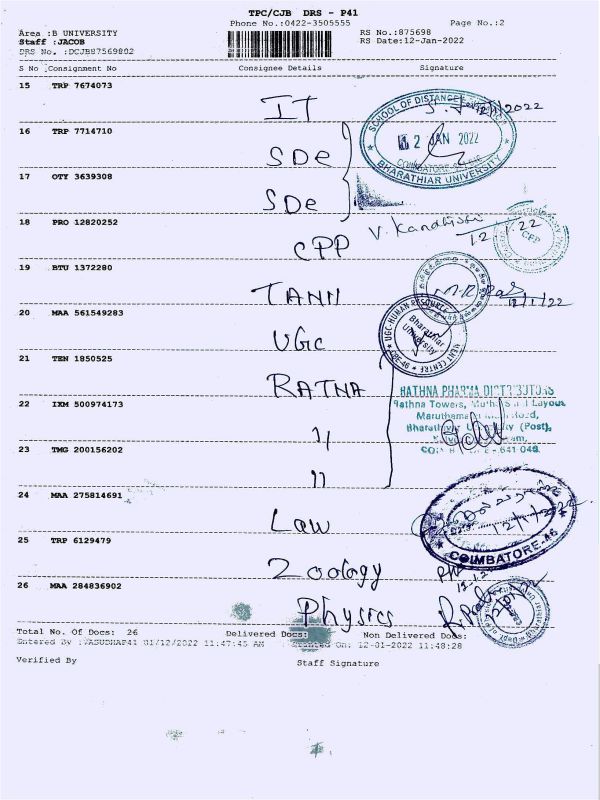 TPC/CJB DRS - P41
Phone No.:0422-3505555
Page No.:2
Area :B UNIVERSITY
RS No.:875698
Staff :JACOB
RS Date:12-Jan-2022
DRS No. :DCJB87569802
S No Consignment No Consignee Details Signature
15 TRP 7674073
IT
12/1/2022
SCHOOL OF DISTANCE
16 TRP 7714710
SDe
12 JAN 2022
17 OTY 3639308
BHARATHIAR UNIVERSITY
SDe
18 PRO 12820252
CPP V. Kandhisi
12.1.22
CPP
19 BTU 1372280
TANN
12/1/22
20 MAA 561549283
UGC
UGC-HUMAN RESOURCE
Bharathiar
University
21 TEN 1850525
RATNA
RATHNA PHARMA DISTRIBUTORS
22 IXM 500974173
Rathna Towers, Layout,
Maruthamalai Main Road,
Bharathiar University (Post),
11
COIMBATORE - 641 046.
23 TMG 200156202
11
24 MAA 275814691
Law
12/1/2022
COIMBATORE-46
25 TRP 6129479
Zoology
26 MAA 284836902
Physics
Total No. Of Docs: 26 Delivered Docs: Non Delivered Docs:
Entered By :VASUDHAP41 01/12/2022 11:47:45 AM Printed On: 12-01-2022 11:48:28
Verified By Staff Signature